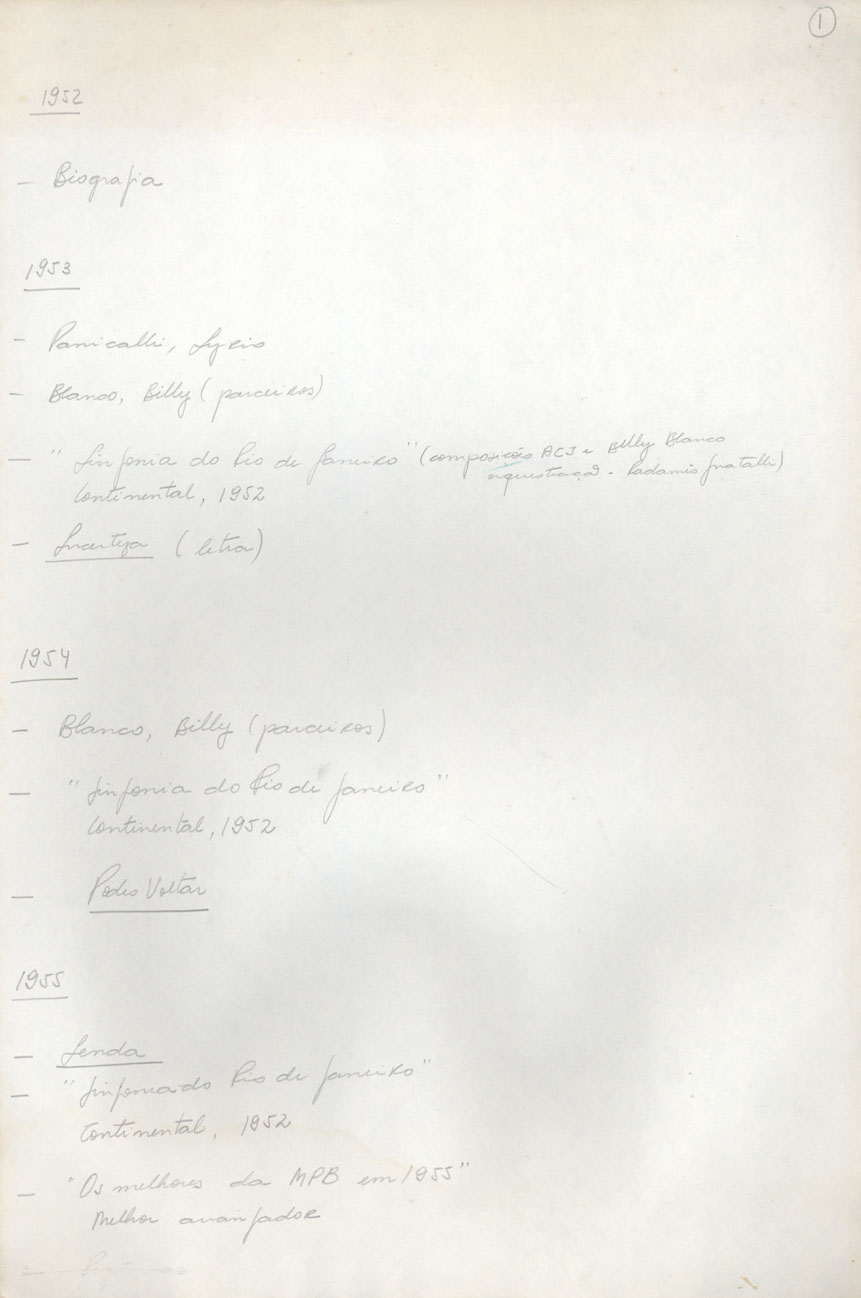 1
1952
– Biografia
1953
– Panicalli, Lyrio
– Blanco, Billy (parceiros)
– "Sinfonia do Rio de Janeiro" (composição ACJ e Billy Blanco
orquestração - Radamés Gnatalli)
Continental, 1952
– Incerteza (letra)
1954
– Blanco, Billy (parceiros)
– "Sinfonia do Rio de Janeiro"
Continental, 1952
– Pode Voltar
1955
– Lenda
– "Sinfonia do Rio de Janeiro"
Continental, 1952
– "Os melhores da MPB em 1955"
Melhor arranjador